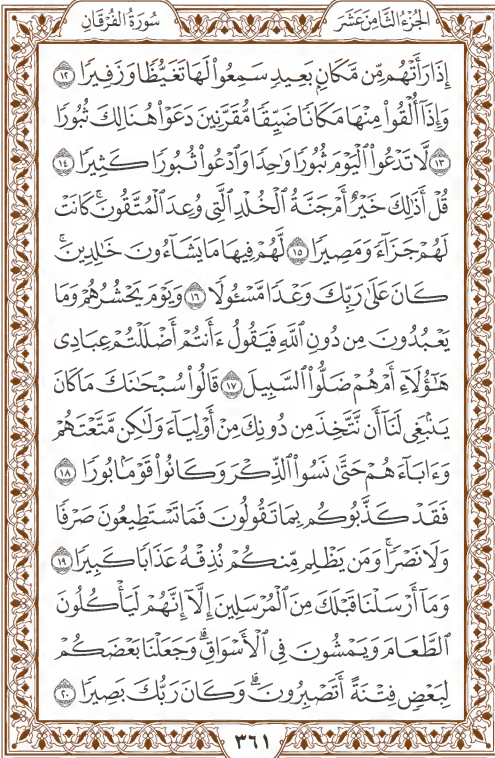 الجُزْءُ الثَّامِنَ عَشَرَ
سُورَةُ الفُرْقَانِ
إِذَا رَأَتْهُم مِّن مَّكَانٍ بَعِيدٍ سَمِعُوا۟ لَهَا تَغَيُّظًا وَزَفِيرًا ١٢
وَإِذَآ أُلْقُوا۟ مِنْهَا مَكَانًا ضَيِّقًا مُّقَرَّنِينَ دَعَوْا۟ هُنَالِكَ ثُبُورًا
١٣ لَّا تَدْعُوا۟ ٱلْيَوْمَ ثُبُورًا وَٰحِدًا وَٱدْعُوا۟ ثُبُورًا كَثِيرًا ١٤
قُلْ أَذَٰلِكَ خَيْرٌ أَمْ جَنَّةُ ٱلْخُلْدِ ٱلَّتِى وُعِدَ ٱلْمُتَّقُونَ ۚ كَانَتْ
لَهُمْ جَزَآءً وَمَصِيرًا ١٥ لَّهُمْ فِيهَا مَا يَشَآءُونَ خَٰلِدِينَ ۚ
كَانَ عَلَىٰ رَبِّكَ وَعْدًا مَّسْـُٔولًا ١٦ وَيَوْمَ يَحْشُرُهُمْ وَمَا
يَعْبُدُونَ مِن دُونِ ٱللَّهِ فَيَقُولُ ءَأَنتُمْ أَضْلَلْتُمْ عِبَادِى
هَٰٓؤُلَآءِ أَمْ هُمْ ضَلُّوا۟ ٱلسَّبِيلَ ١٧ قَالُوا۟ سُبْحَٰنَكَ مَا كَانَ
يَنۢبَغِى لَنَآ أَن نَّتَّخِذَ مِن دُونِكَ مِنْ أَوْلِيَآءَ وَلَٰكِن مَّتَّعْتَهُمْ
وَءَابَآءَهُمْ حَتَّىٰ نَسُوا۟ ٱلذِّكْرَ وَكَانُوا۟ قَوْمًۢا بُورًا ١٨
فَقَدْ كَذَّبُوكُم بِمَا تَقُولُونَ فَمَا تَسْتَطِيعُونَ صَرْفًا
وَلَا نَصْرًا ۚ وَمَن يَظْلِم مِّنكُمْ نُذِقْهُ عَذَابًا كَبِيرًا ١٩
وَمَآ أَرْسَلْنَا قَبْلَكَ مِنَ ٱلْمُرْسَلِينَ إِلَّآ إِنَّهُمْ لَيَأْكُلُونَ
ٱلطَّعَامَ وَيَمْشُونَ فِى ٱلْأَسْوَاقِ ۗ وَجَعَلْنَا بَعْضَكُمْ
لِبَعْضٍ فِتْنَةً أَتَصْبِرُونَ ۗ وَكَانَ رَبُّكَ بَصِيرًا ٢٠
٣٦١